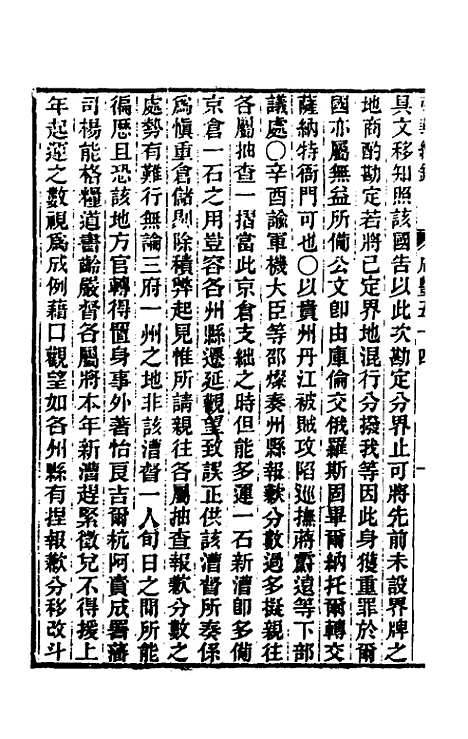 咸豐五十四
具文移知照該國告以此次勘定分界止可將先前未設界牌之
地商酌勘定若將已定界地混行分撥我等因此身獲重罪於爾
國亦屬無益所備公文卽由庫倫交俄羅斯固畢爾納托爾轉交
薩納特衙門可也〇以貴州丹江被賊攻陷巡撫蔣霨遠等下部
議處〇辛酉諭軍機大臣等邵燦奏州縣報歉分數過多擬親往
各屬抽查一摺當此京倉支絀之時但能多運一石新漕卽多備
京倉一石之用豈容各州縣遷延觀望致誤正供該漕督所奏係
爲愼重倉儲剔除積弊起見惟所請親往各屬抽查報歉分數之
處勢有難行無論三府一州之地非該漕督一人旬日之間所能
徧歷且恐該地方官轉得置身事外著怡良吉爾杭阿責成署藩
司楊能格糧道書齡嚴督各屬將本年新漕趕緊徵兌不得援上
年起運之數視爲成例藉口觀望如各州縣有捏報歉分移改斗